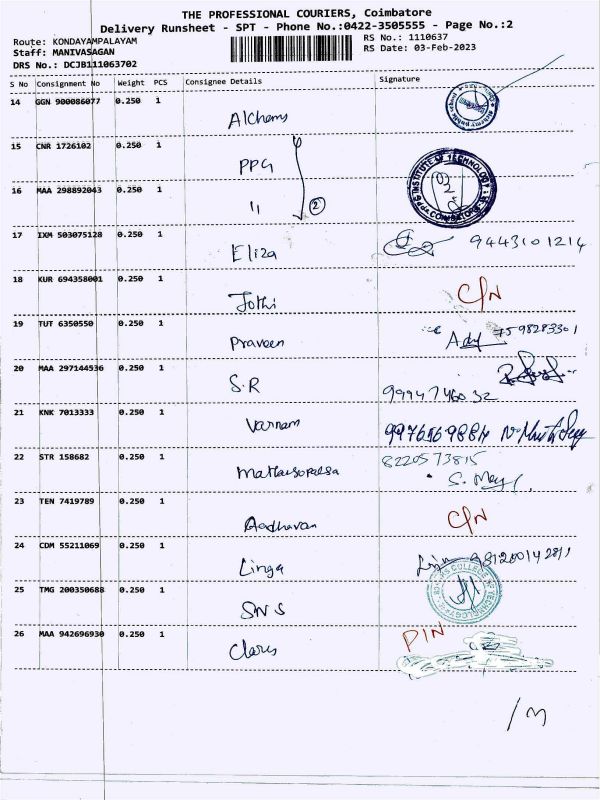 THE PROFESSIONAL COURIERS, Coimbatore
Delivery Runsheet - SPT - Phone No.:0422-3505555 - Page No.:2
Route: KONDAYAMPALAYAM
RS No.: 1110637
Staff: MANIVASAGAN
RS Date: 03-Feb-2023
DRS No.: DCJB111063702
S No Consignment No Weight PCS Consignee Details Signature
14 GGN 900086077 0.250 1 Alchems
15 CNR 1726102 0.250 1 PPG
INSTITUTE OF TECHNOLOGY
16 MAA 298892043 0.250 1 11 2
17 IXM 503075128 0.250 1 Eliza 9443101214
18 KUR 694358001 0.250 1 Jothi C/N
19 TUT 6350550 0.250 1 Praveen
20 MAA 297144536 0.250 1 S.R
9994746032
21 KNK 7013333 0.250 1 Varnam
22 STR 158682 0.250 1 8220573815
23 TEN 7419789 0.250 1 Aadhavan C/N
24 CDM 55211069 0.250 1 Linga
COLLEGE OF TECHNOLOGY
25 TMG 200350688 0.250 1 SNS
26 MAA 942696930 0.250 1 PIN